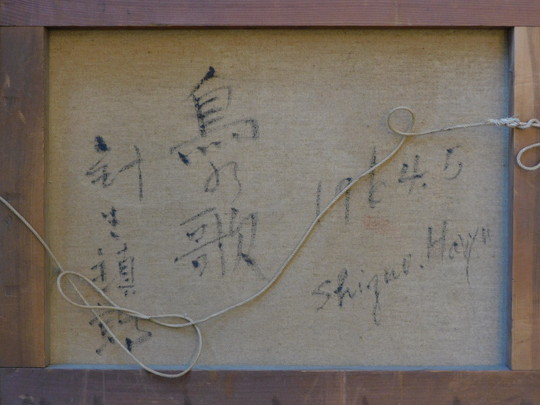 鳥の歌
針生鎮郎
1964.5
Shizuo.